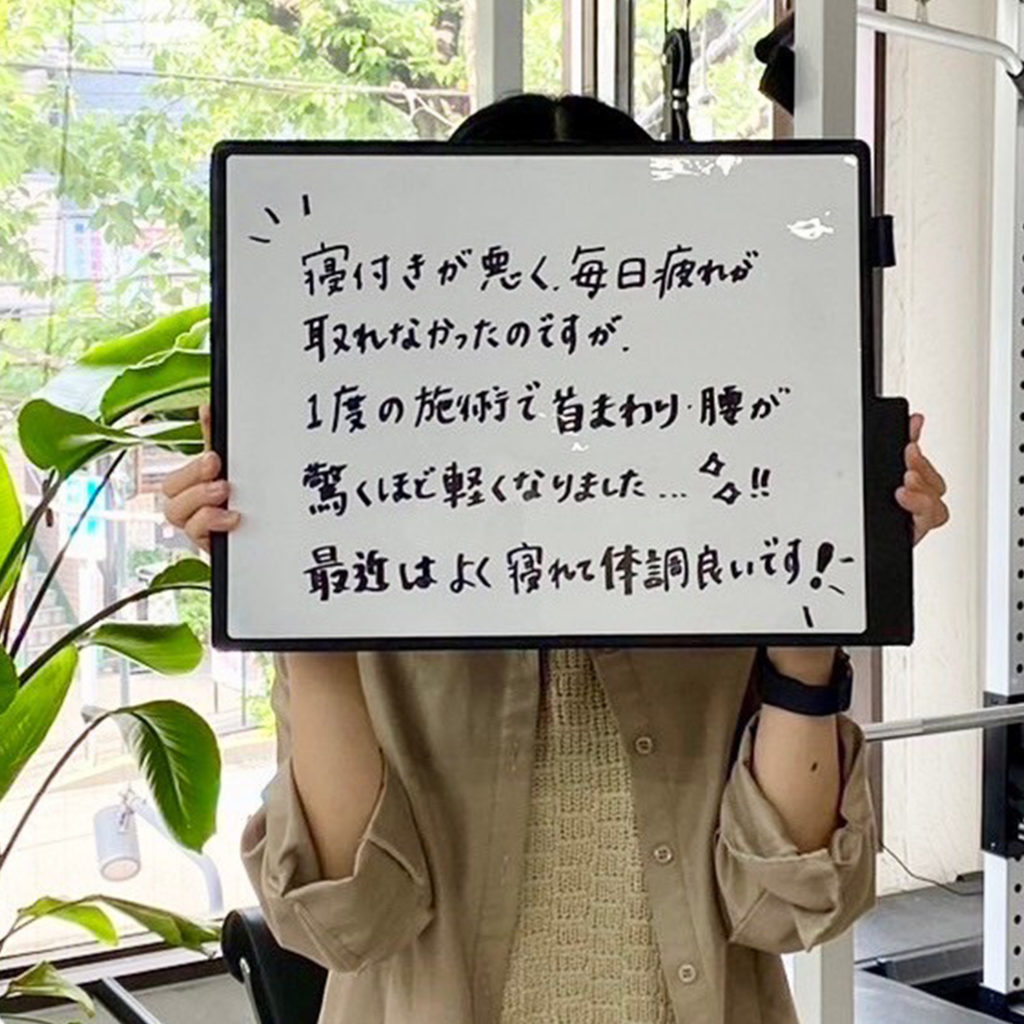 寝付きが悪く、毎日疲れが
取れなかったのですが、
1度の施術で首まわり・腰が
驚くほど軽くなりました…!!
最近はよく寝れて体調良いです!